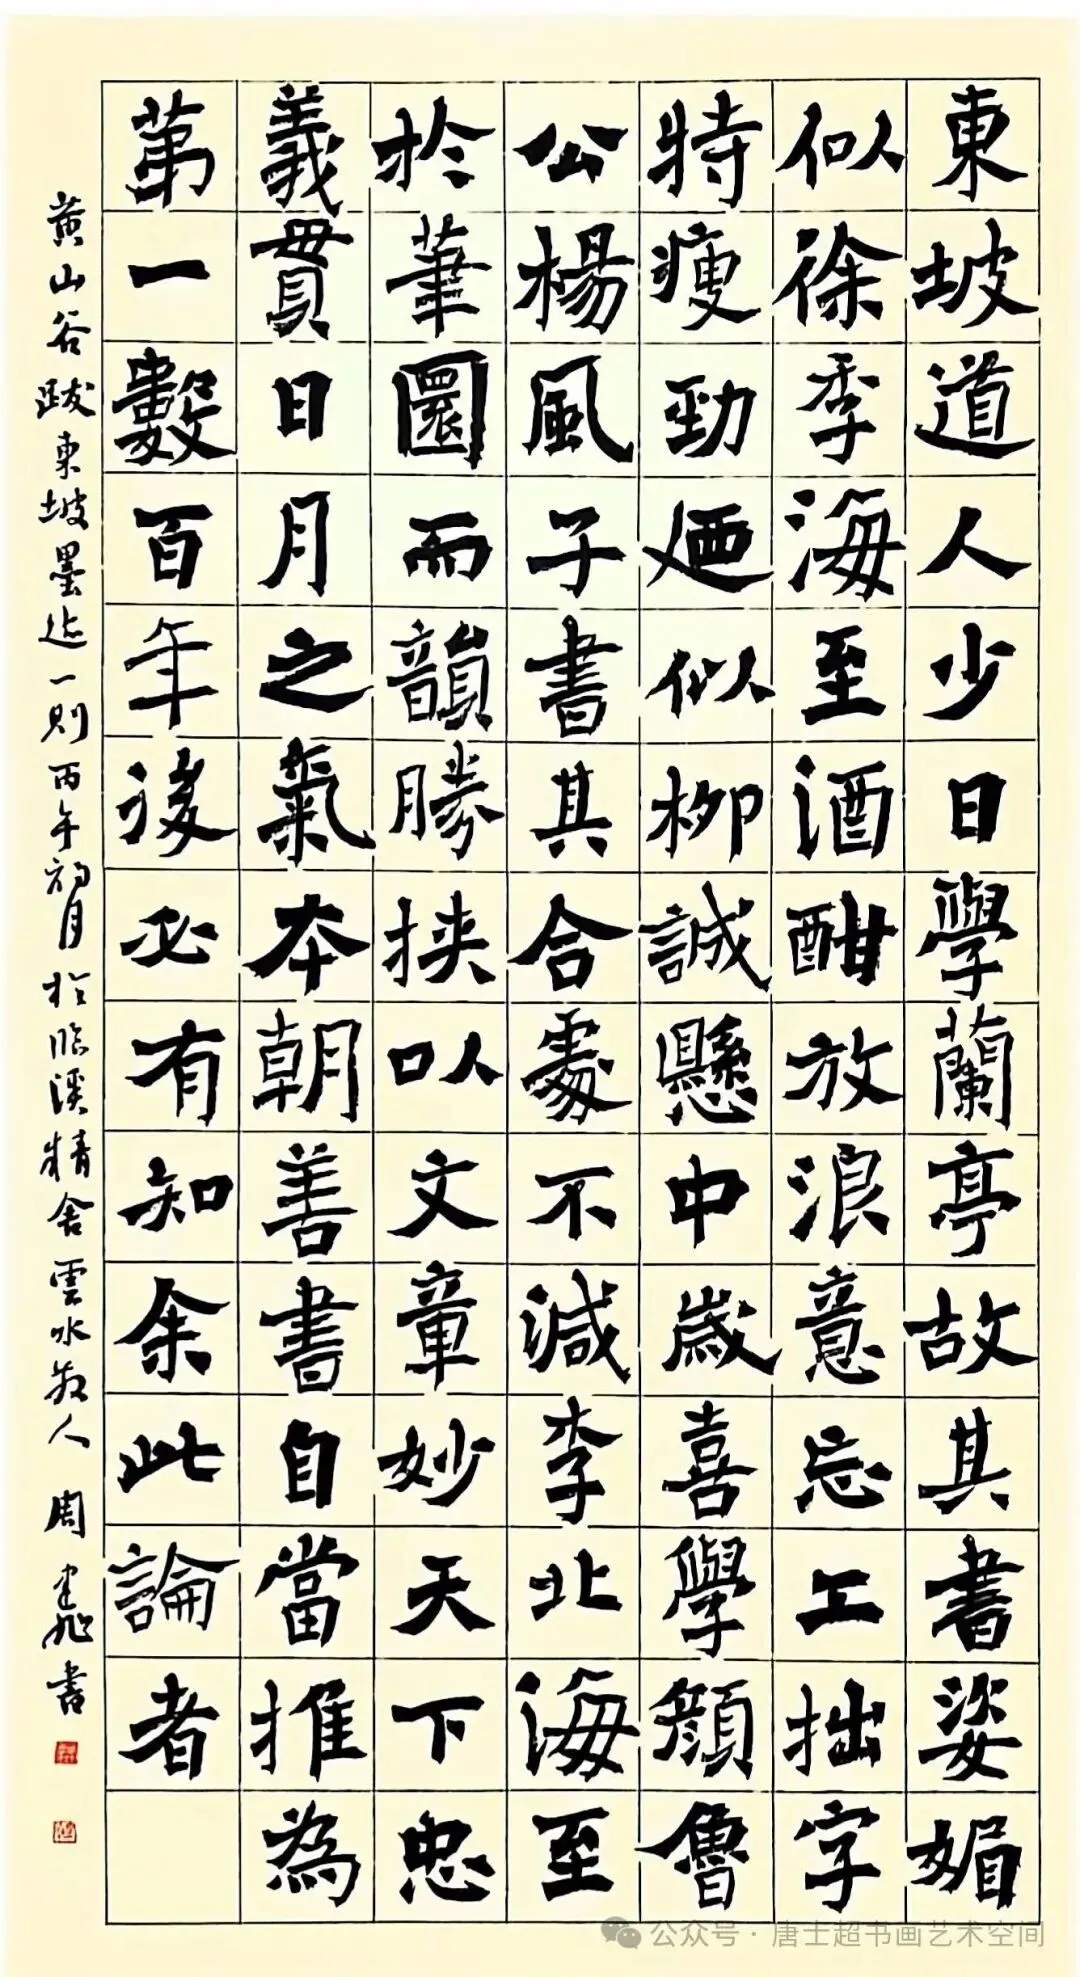 東坡道人少日學蘭亭故其書姿媚
似徐季海至酒酣放浪意忘工拙字
特瘦勁迺似柳誠懸中歲喜學顏魯
公楊風子書其合處不減李北海至
於筆圜而韻勝挾以文章妙天下忠
義貫日月之氣本朝善書自當推為
第一數百年後必有知余此論者
黃山谷跋東坡墨迹一則丙午初月於臨溪精舍雲水散人 周書
公众号·唐士超书画艺术空间